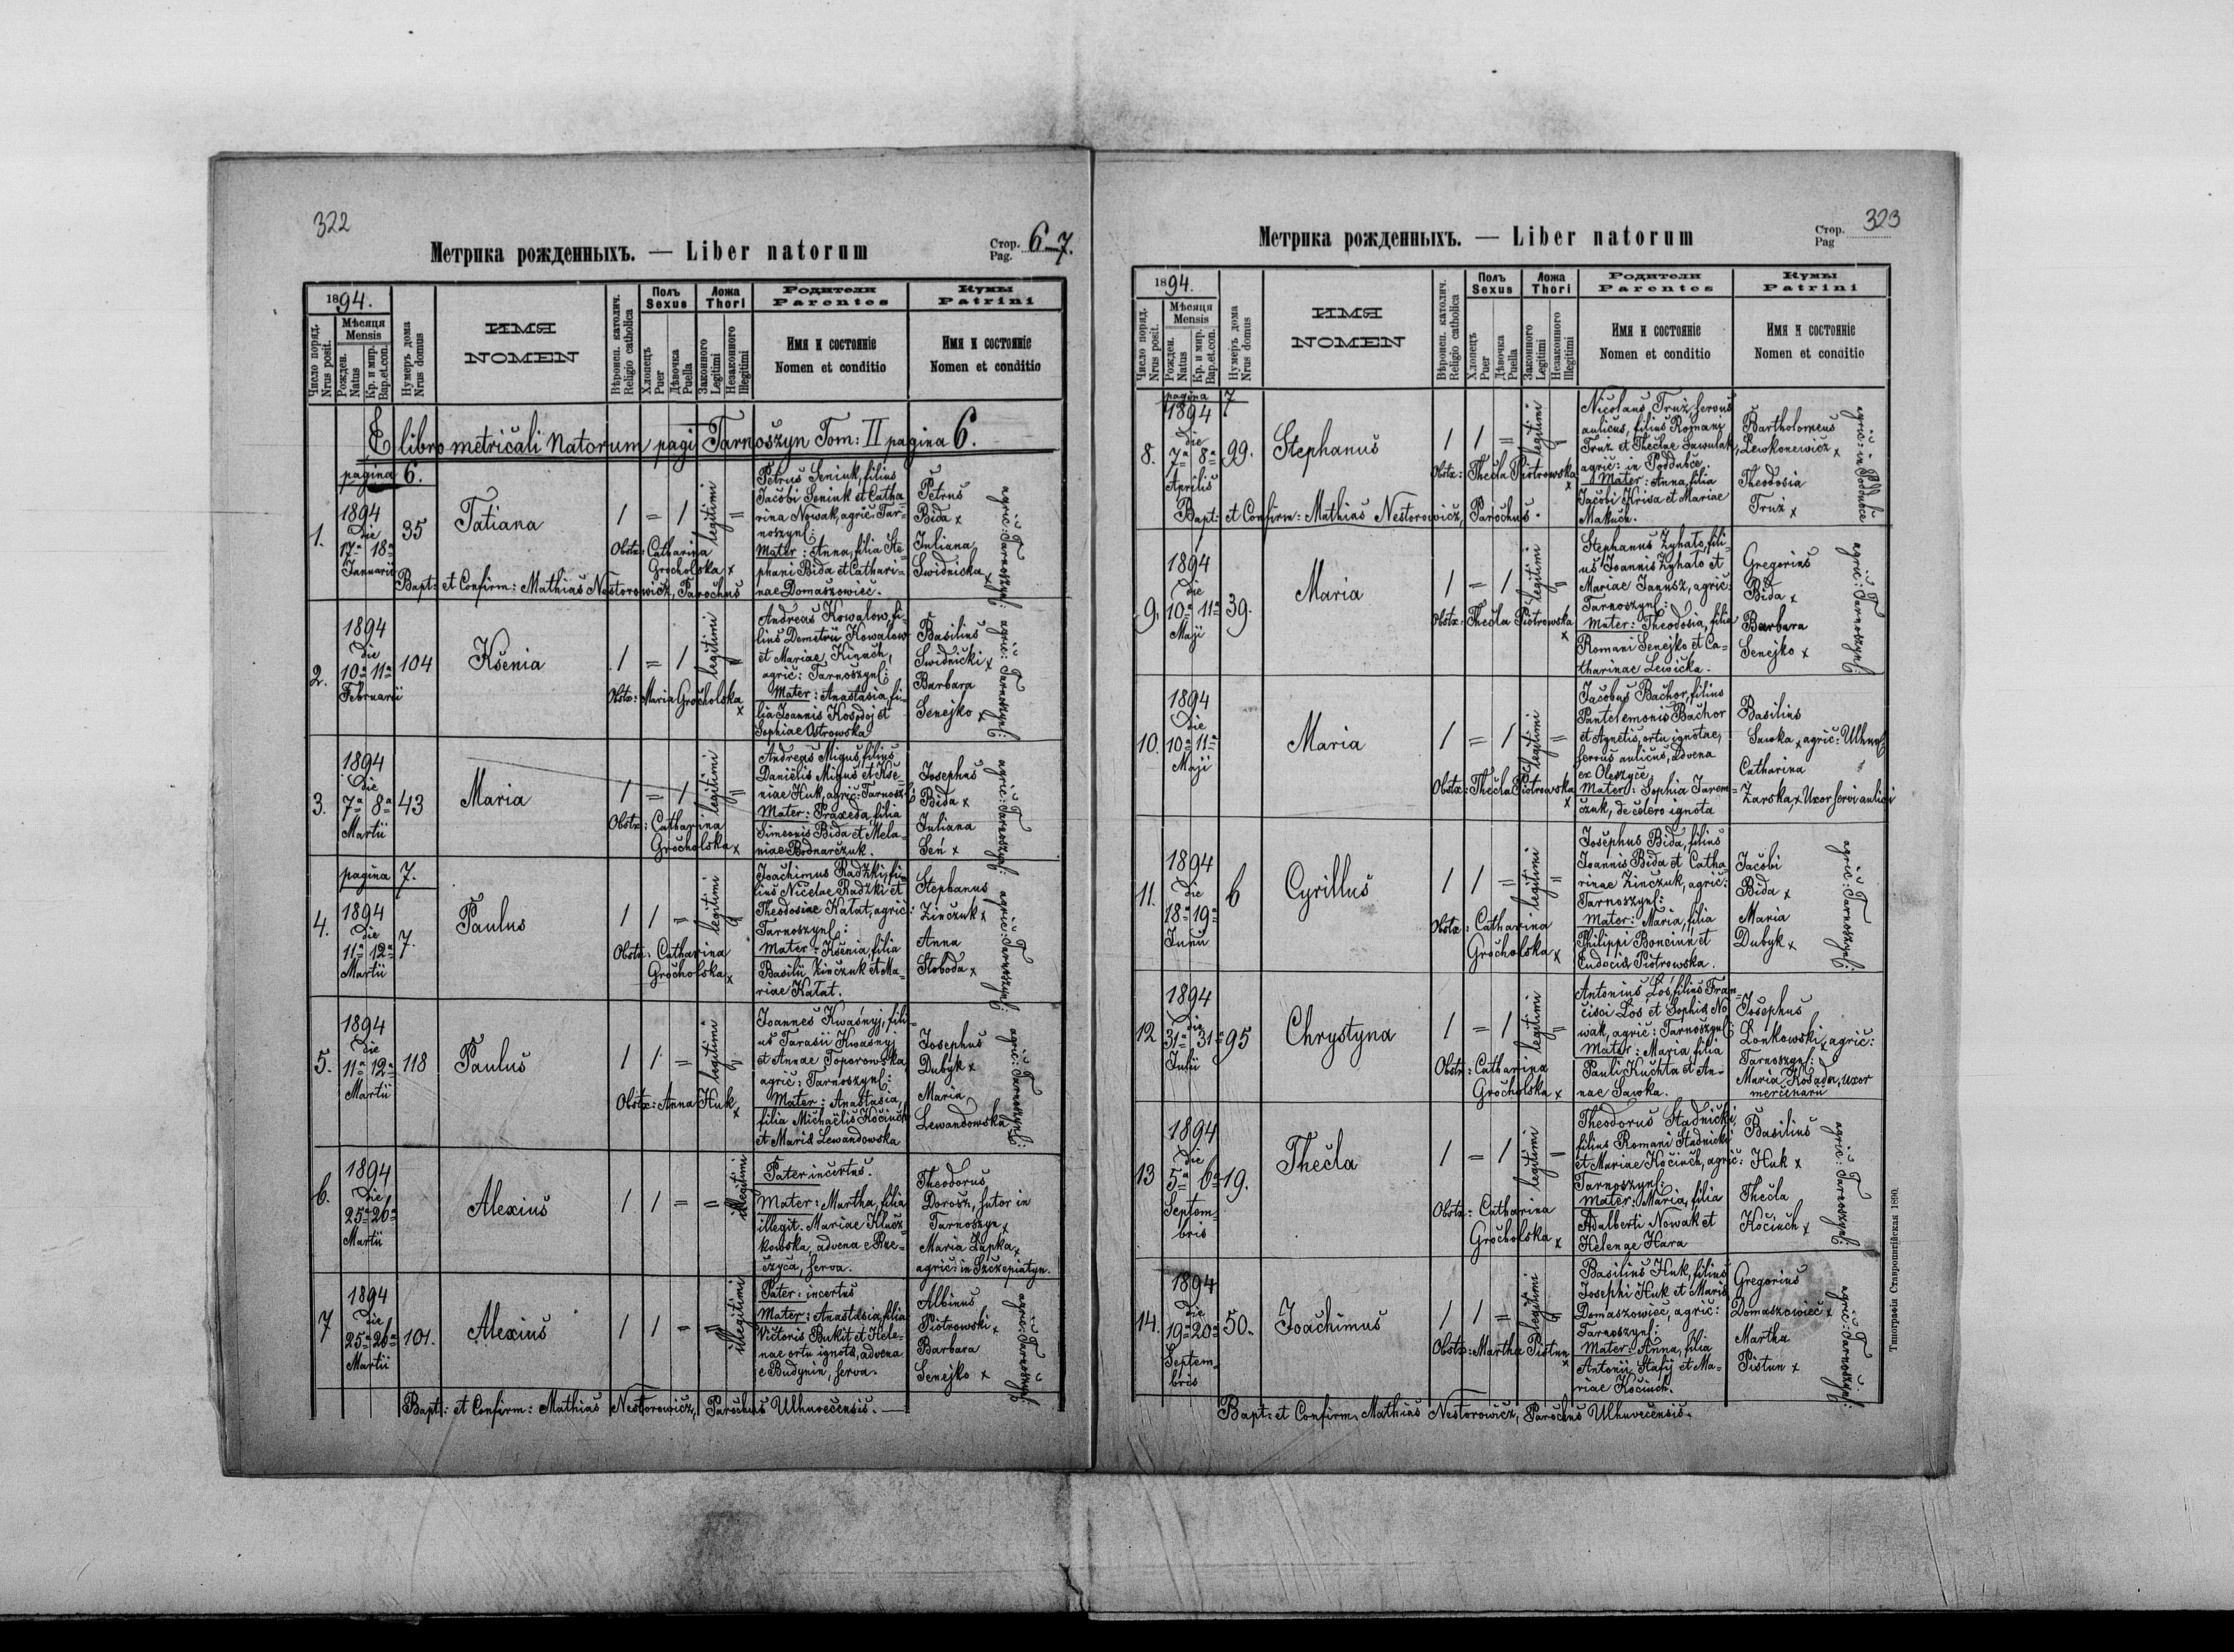 322
Метрика рожденныхъ. — Liber natorum
Стор. Pag. 6–7.
1894.
Число поряд. Nrus posit.
Мѣсяця Mensis
Рожден. Natus
Кр. и мир. Bap.et.con.
Нумеръ дома Nrus domus
ИМЯ
NOMEN
Вѣроисп. католич. Religio catholica
Полъ Sexus
Хлопецъ Puer
Дѣвочка Puella
Ложа Thori
Законного Legitimi
Незаконного Illegitimi
Родители
Parentes
Имя и состояніе
Nomen et conditio
Кумы
Patrini
Имя и состояніе
Nomen et conditio
E libro metricali Natorum pagi Tarnoszyn Tom: II pagina 6.
pagina 6.
1.
1894
die
17a 18a
Januarii
35
Tatiana
1 = 1 legitimi =
Obstx: Catharina
Grocholska x
Petrus Seniuk, filius
Jacobi Seniuk et Catha-
rina Nowak, agric: Tar-
noszyn:
Mater: Anna, filia Ste-
phani Bida et Cathari-
nae Domaszowiec.
Petrus
Bida x
Juliana
Swidnicka x
agric: Tarnoszyn:
Bapt: et Confirm: Mathias Nestorowicz, Parochus
2.
1894
die
10a 11a
Februarii
104
Ksenia
1 = 1 legitimi =
Obstx: Maria Grocholska x
Andreas Kowalow, fi-
lius Demetrii Kowalow
et Mariae Kinach,
agric: Tarnoszyn:
Mater: Anastasia, fi-
lia Joannis Kosodoj et
Sophiae Ostrowska
Basilius
Swidnicki x
Barbara
Senejko x
agric: Tarnoszyn:
3.
1894
die
7a 8a
Martii
43
Maria
1 = 1 legitimi =
Obstx: Catharina
Grocholska x
Andreas Migus, filius
Danielis Migus et Kse-
niae Huk, agric: Tarnosz:
Mater: Praxeda, filia
Simeonis Bida et Mela-
niae Bodnarczuk.
Josephus
Bida x
Juliana
Seń x
agric: Tarnoszyn:
pagina 7.
4.
1894
die
11a 12a
Martii
7.
Paulus
1 1 = legitimi =
Obstx: Catharina
Grocholska x
Joachimus Radzki, fi-
lius Nicolae Radzki et
Theodosiae Kałat, agric:
Tarnoszyn:
Mater: Ksenia, filia
Basilii Zinczuk et Ma-
riae Kałat.
Stephanus
Zinczuk x
Anna
Słoboda x
agric: Tarnoszyn:
5.
1894
die
11a 12a
Martii
118
Paulus
1 1 = legitimi =
Obstx: Anna Huk x
Joannes Kwaśnyj, fili-
us Tarasii Kwaśnyj
et Annae Toporowska
agric: Tarnoszyn:
Mater: Anastasia,
filia Michaëlis Kociuch
et Maria Lewandowska
Josephus
Dubyk x
Maria
Lewandowska
agric: Tarnoszyn:
6.
1894
die
25a 26a
Martii
Alexius
1 1 = = illegitimi
Pater incertus.
Mater: Martha, filia
illegit. Mariae
kowska, advena e
czyca, serva.
Theodorus
Dorosz, sutor in
Tarnoszyn x
Maria Łapka x
agric: in Szczepiatyn.
7
1894
die
25a 26a
Martii
101.
Alexius
1 1 = = illegitimi
Pater: incertus
Mater: Anastasia, filia
Victoris Bukit et Hele-
nae ortu ignota, advena
e Budynin, serva.
Albinus
Piotrowski x
Barbara
Senejko x
agric: Tarnoszyn:
Bapt: et Confirm: Mathias Nestorowicz, Parochus Ulhuvecensis. —
323
Метрика рожденныхъ. — Liber natorum
Стор. Pag
1894.
Число поряд. Nrus posit.
Мѣсяця Mensis
Рожден. Natus
Кр. и мир. Bap.et.con.
Нумеръ дома Nrus domus
ИМЯ
NOMEN
Вѣроисп. католич. Religio catholica
Полъ Sexus
Хлопецъ Puer
Дѣвочка Puella
Ложа Thori
Законного Legitimi
Незаконного Illegitimi
Родители
Parentes
Имя и состояніе
Nomen et conditio
Кумы
Patrini
Имя и состояніе
Nomen et conditio
pagina 7
8.
1894
die
7a 8a
Aprilis
99.
Stephanus
1 1 = legitimi =
Obstx: Thecla Piotrowska x
Nicolaus Truż, servus
aulicus, filius Romani
Truż et Theclae Sawulak,
agric: in Poddubce.
Mater: Anna, filia
Jacobi Krisa et Mariae
Makuch.
Bartholomeus
Lewkonewicz x
Theodosia
Truż x
agric: in Poddubce
Bapt: et Confirm: Mathias Nestorowicz, Parochus.
9.
1894
die
10a 11a
Maji
39.
Maria
1 = 1 legitimi =
Obstx: Thecla Piotrowska x
Stephanus Zyhało, fili-
us Joannis Zyhało et
Mariae Janusz, agric:
Tarnoszyn:
Mater: Theodosia, filia
Romani Senejko et Ca-
tharinae Lewicka.
Gregorius
Bida x
Barbara
Senejko x
agric: Tarnoszyn:
10.
1894
die
10a 11a
Maji
Maria
1 = 1 legitimi =
Obstx: Thecla Piotrowska x
Jacobus Bachor, filius
Pantelemonis Bachor
et Agnetis, ortu ignotae,
servus aulicus, advena
ex Oleszyce.
Mater: Sophia Jarem-
czuk, de cetero ignota
Basilius
Sawka x agric: Ulhuw:
Catharina
Zarska x Uxor servi aulici
11.
1894
die
18a 19a
Junii
6
Cyrillus
1 1 = legitimi =
Obstx: Catharina
Grocholska x
Josephus Bida, filius
Joannis Bida et Catha-
rinae Zinczuk, agric:
Tarnoszyn:
Mater: Maria, filia
Philippi Bonciun et
Eudocia Piotrowska.
Jacobi
Bida x
Maria
Dubyk x
agric: Tarnoszyn:
12
1894
die
31a 31a
Julii
95
Chrystyna
1 = 1 legitimi =
Obstx: Catharina
Grocholska x
Antonius Łoś, filius Fran-
cisci Łoś et Sophia No-
wak, agric: Tarnoszyn:
Mater: Maria, filia
Pauli Kuchta et An-
nae Sawka.
Josephus
Lonkowski x agric:
Tarnoszyn:
Maria Kosada, uxor
mercenarii
13
1894
die
5a 6a
Septem-
bris
19.
Thecla
1 = 1 legitimi =
Obstx: Catharina
Grocholska x
Theodorus Stadnicki,
filius Romani Stadnicki
et Mariae Kociuch, agric:
Tarnoszyn:
Mater: Maria, filia
Adalberti Nowak et
Helenae Hara
Basilius
Huk x
Thecla
Kociuch x
agric: Tarnoszyn:
14.
1894
die
19a 20a
Septem-
bris
50.
Joachimus
1 1 = legitimi =
Obstx: Martha Pistun x
Basilius Huk, filius
Josephi Huk et Maria
Domaszowiec, agric:
Tarnoszyn:
Mater: Anna, filia
Antonii Stafij et Ma-
riae Kociuch.
Gregorius
Domaszowiec x
Martha
Pistun x
agric: Tarnoszyn:
Bapt: et Confirm. Mathias Nestorowicz, Parochus Ulhuvecensis.
Типографія Ставропигійская 1890.